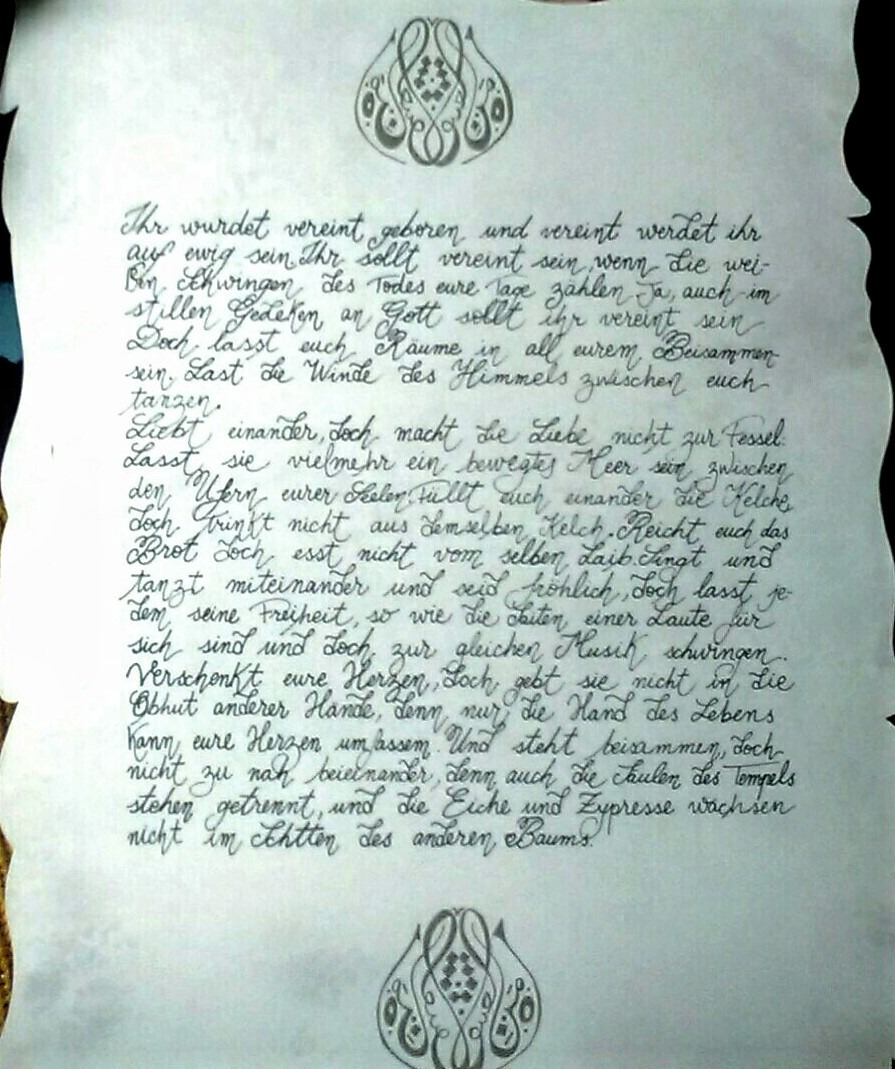 Ihr wurdet vereint geboren und vereint werdet ihr
auf ewig sein. Ihr sollt vereint sein, wenn die wei-
ßen Schwingen des Todes eure Tage zählen Ja, auch im
stillen Gedeken an Gott sollt ihr vereint sein
Doch lasst euch Räume in all eurem Beisammen-
sein. Last die Winde des Himmels zwischen euch
tanzen.
Liebt einander, doch macht die Liebe nicht zur Fessel.
Lasst sie vielmehr ein bewegtes Meer sein zwischen
den Ufern eurer Seelen. Füllt euch einander die Kelche,
doch trinkt nicht aus demselben Kelch. Reicht euch das
Brot doch esst nicht vom selben Laib. Singt und
tanzt miteinander und seid fröhlich, doch lasst je-
dem seine Freiheit, so wie die Saiten einer Laute für
sich sind und doch zur gleichen Musik schwingen.
Verschenkt eure Herzen, doch gebt sie nicht in die
Obhut anderer Hände, denn nur die Hand des Lebens
kann eure Herzen umfassem. Und steht beisammen, doch
nicht zu nah beieinander, denn auch die Säulen des Tempels
stehen getrennt, und die Eiche und Zypresse wachsen
nicht im Schtten des anderen Baums.